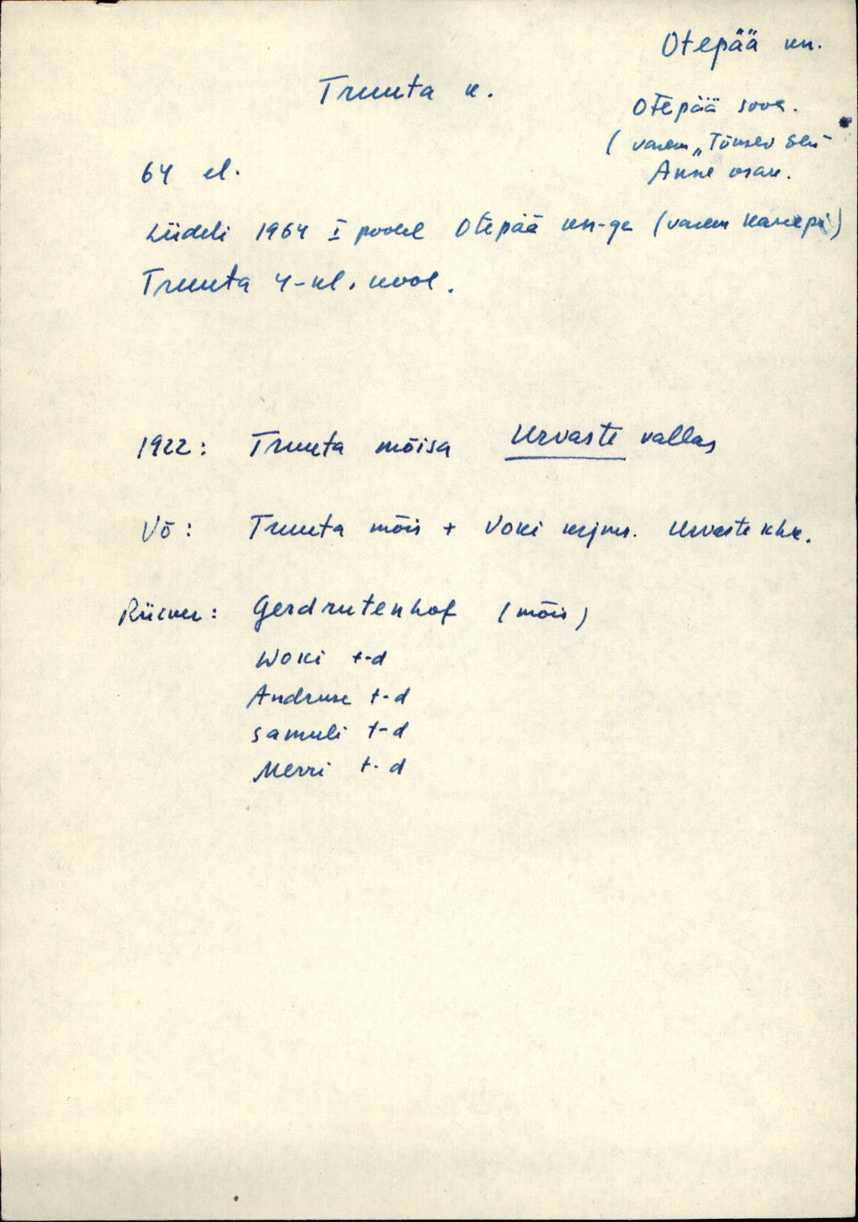 Otepää kn.
Truuta k.
Otepää sovh.
(varem „Tõusev
Anne osak.
64 el.
Liideti 1964 I poolel Otepää kn-ga (varem Kanepi)
Truuta 4-kl. kool.
1922: Truuta mõisa Urvaste vallas
Võ: Truuta mõis + Voki krjms. Urvaste khk.
Rücker: Gerdrutenhof (mõis)
Woki t-d
Andruse t-d
Samuli t-d
Merri t-d